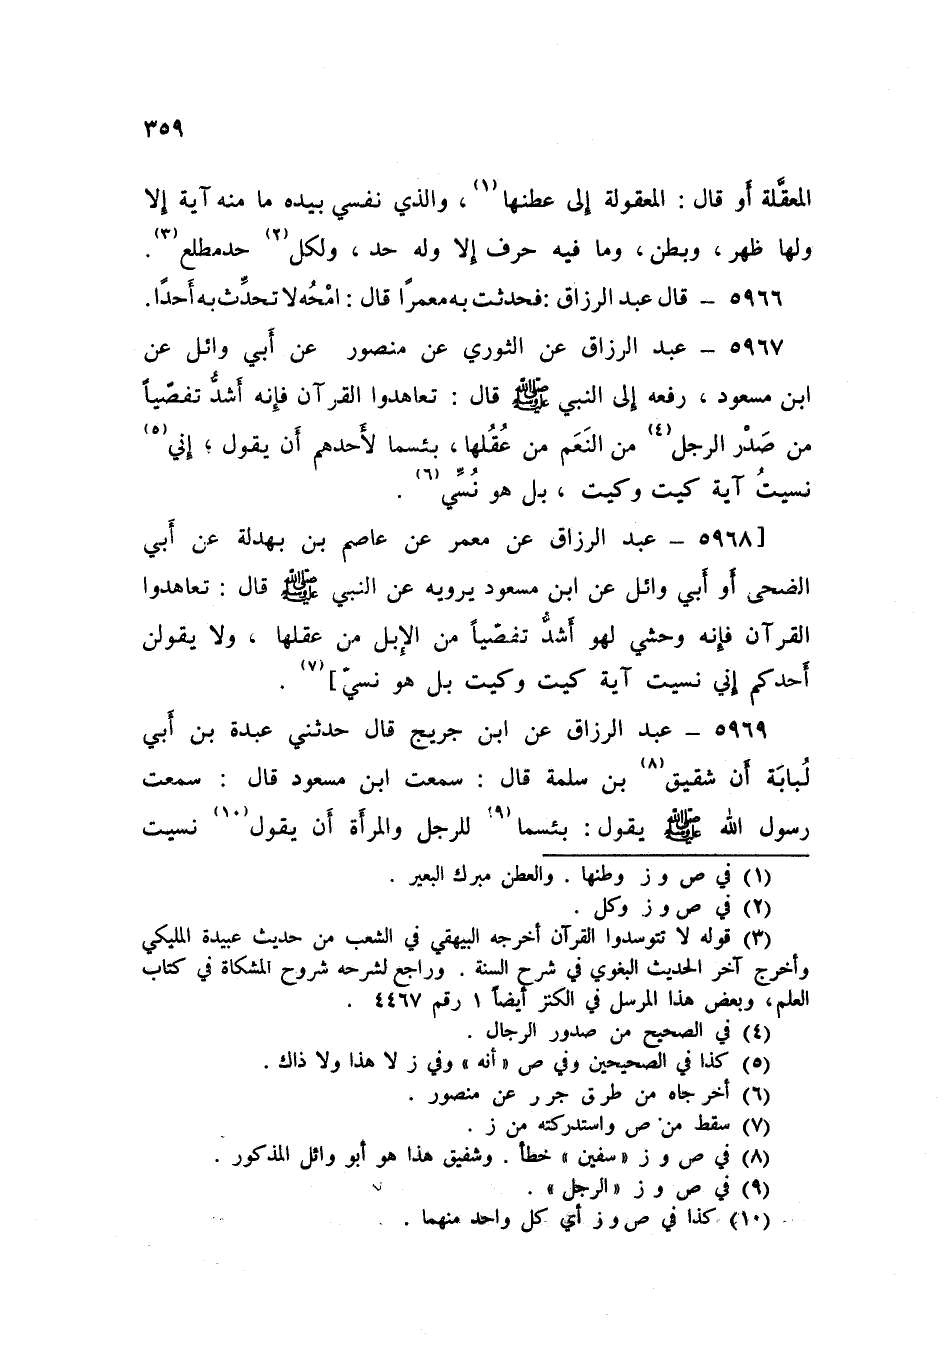 ٣٥٩
المعقَّلة أَو قال : المعقولة إلى عطنها(١) ، والذي نفسي بيده ما منه آية إلا
ولها ظهر ، وبطن ، وما فيه حرف إلا وله حد ، ولكل(٢) حد مطلع(٣) .
٥٩٦٦ – قال عبد الرزاق : فحدثت به معمرًا قال : امْحُه لا تحدِّث به أَحدًا .
٥٩٦٧ – عبد الرزاق عن الثوري عن منصور عن أَبي وائل عن
ابن مسعود ، رفعه إلى النبي ﷺ قال : تعاهدوا القرآن فإنه أَشدُّ تفصّياً
من صَدْر الرجل(٤) من النَعَم من عُقُلها ، بئسما لأَحدهم أَن يقول ؛ إني(٥)
نسيتُ آية كيت وكيت ، بل هو نُسِّي(٦) .
[٥٩٦٨ – عبد الرزاق عن معمر عن عاصم بن بهدلة عن أَبي
الضحى أَو أَبي وائل عن ابن مسعود يرويه عن النبي ﷺ قال : تعاهدوا
القرآن فإنه وحشي لهو أَشدُّ تفصّياً من الإبل من عقلها ، ولا يقولن
أَحدكم إني نسيت آية كيت وكيت بل هو نسيّ](٧) .
٥٩٦٩ – عبد الرزاق عن ابن جريج قال حدثني عبدة بن أَبي
لُبابَة أَن شقيق(٨) بن سلمة قال : سمعت ابن مسعود قال : سمعت
رسول الله ﷺ يقول : بئسما(٩) للرجل والمرأَة أَن يقول(١٠) نسيت
(١) في ص و ز وطنها . والعطن مبرك البعير .
(٢) في ص و ز وكل .
(٣) قوله لا تتوسدوا القرآن أخرجه البيهقي في الشعب من حديث عبيدة المليكي
وأخرج آخر الحديث البغوي في شرح السنة . وراجع لشرحه شروح المشكاة في كتاب
العلم ، وبعض هذا المرسل في الكنز أيضاً ١ رقم ٤٤٦٧ .
(٤) في الصحيح من صدور الرجال .
(٥) كذا في الصحيحين وفي ص « أنه » وفي ز لا هذا ولا ذاك .
(٦) أخرجاه من طرق جرر عن منصور .
(٧) سقط من ص واستدركته من ز .
(٨) في ص و ز « سفين » خطأ . وشفيق هذا هو أبو وائل المذكور .
(٩) في ص و ز « الرجل » .
(١٠) كذا في ص و ز أي كل واحد منهما .